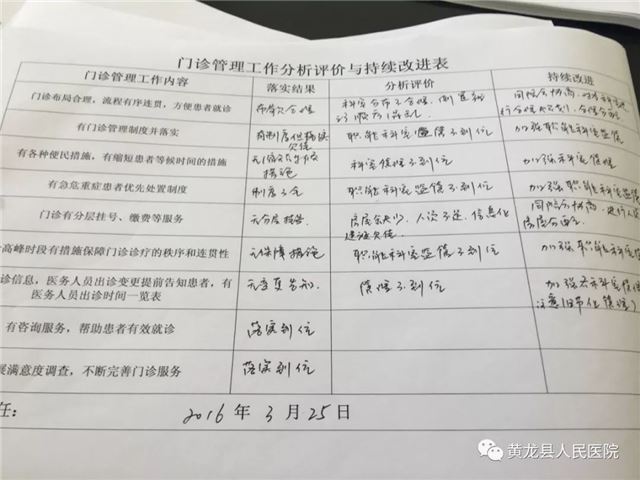 门诊管理工作分析评价与持续改进表
门诊管理工作内容 落实结果 分析评价 持续改进
门诊布局合理，流程有序连贯，方便患者就诊 布局欠合理 科室分布不合理，
有门诊管理制度并落实 有制度但落实欠缺 职能科室 不到位 加强职能科室监管
有各种便民措施，有缩短患者等候时间的措施 措施 科室管理不到位 加强科室管理
有急危重症患者优先处置制度 制度不全 职能科室监管不到位 加强职能科室监管
门诊有分层挂号、缴费等服务 无分层 人员不足，信息化建设欠缺
高峰时段有措施保障门诊诊疗的秩序和连贯性 无保障措施 职能科室监管不到位 加强职能科室监管
诊信息，医务人员出诊变更提前告知患者，有 无变更告知 管理不到位 加强
医务人员出诊时间一览表
有咨询服务，帮助患者有效就诊 落实到位
展满意度调查，不断完善门诊服务 落实到位
任：
2016 年 3 月 25 日
黄龙县人民医院